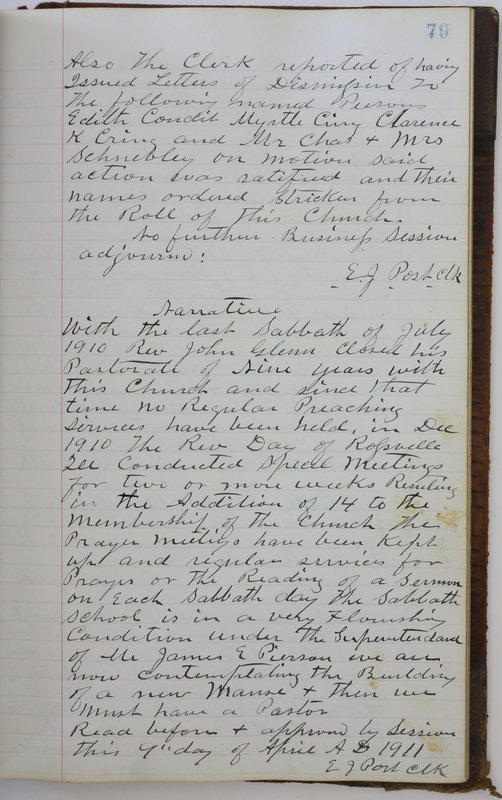 79
Also The Clerk reported of having
Issued Letters of Dismision To
The following named Persons
Edith Condit Myrtle Cring Clarence
K Cring and Mr Chas + Mrs
Schnebley on motion said
action was ratified and their
names ordered Stricken from
the Roll of This Church.
No further Business Session
adjourn:
E. J. Post clk
Narrative
With the last Sabbath of July
1910 Rev John Glenn Closed his
Pastorate of Nine years with
This Church and since that
time No Regular Preaching
Services have been held, in Dec
1910 The Rev Day of Rossville
Ill Conducted Special Meetings
for two or more weeks Resulting
in the Addition of 14 to the
Membership of the Church The
Prayer Meetings have been Kept
up and regular services for
Prayer or the Reading of a Sermon
on Each Sabbath day The Sabbath
School is in a very Flourishing
Condition under the Superintendance
of Mr James E Pierson we are
now Contemplating the Building
of a new Manse + then we
Must have a Pastor
Read before + approved by Session
this 4" day of April A D 1911
E J Post clk